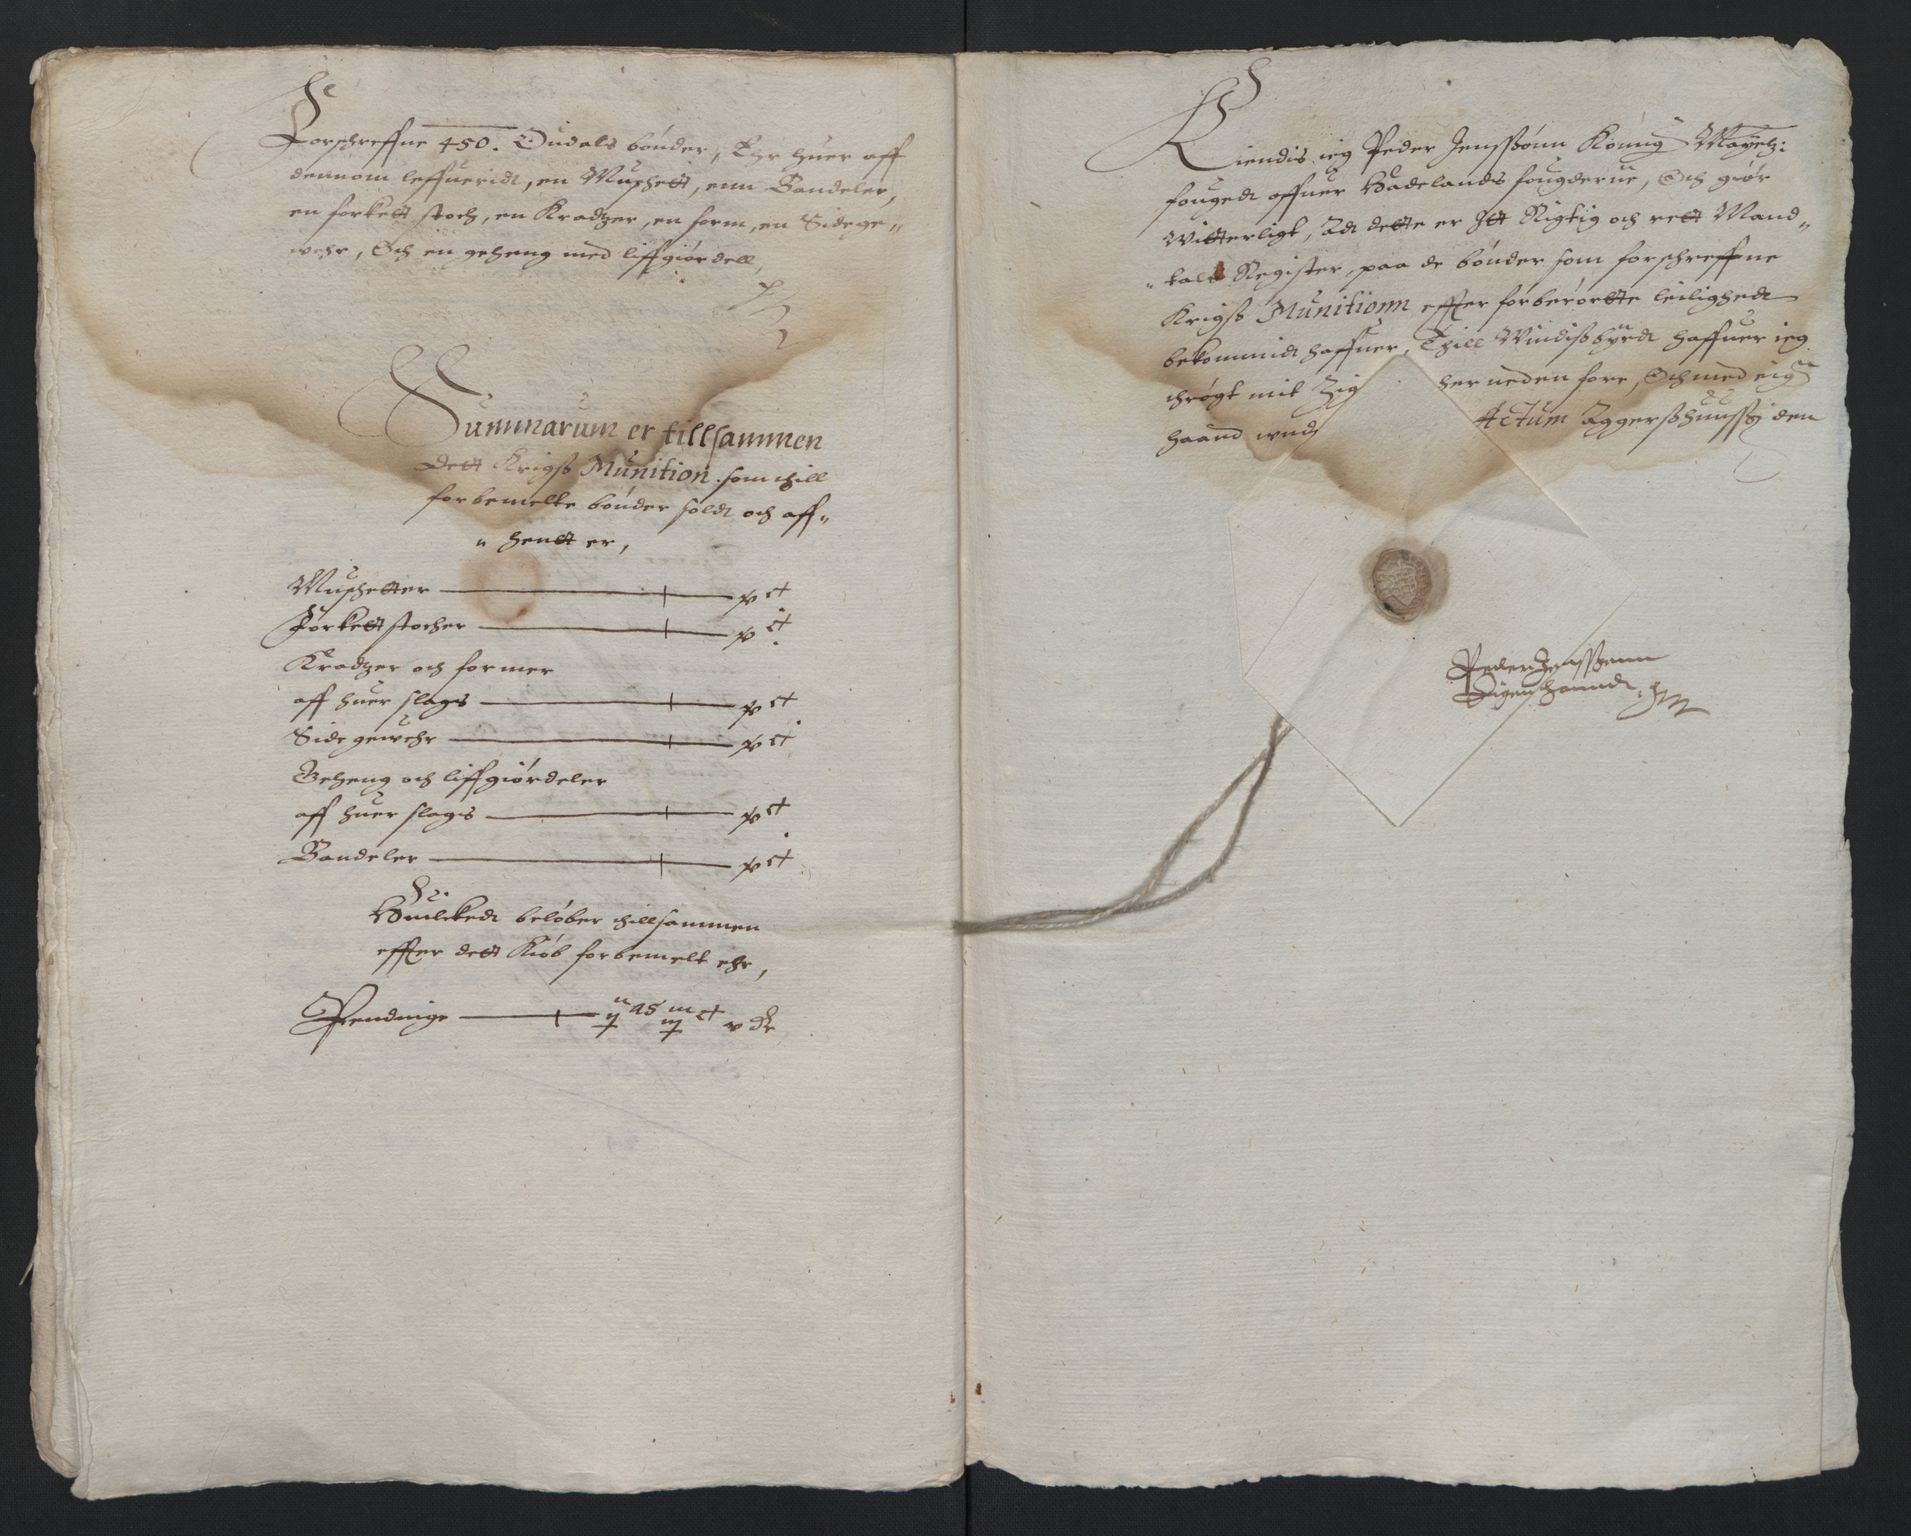 Forschreffne 450. Oudals bønder, Ehr huer aff
dennom leffueridt, en Muschett, enn Bandeler,
en forkett stoch, en Kradtzer, en form, en Sidege„
wehr, Och en geheng med liffgiørdell,
Summarum er tillsammen
Dett Krigss Munition som thill
forbemelte bønder soldt och aff„
„ hentt er,
Muschetter
Førkett stocher
Kradtzer och former
aff huer slags
Side gewehr
Geheng och liffgiørdeler
aff huer slags
Bandeler
Huilckedt beløber thillsammen
effter dett Kiøb forbemelt ehr,
Pendinge
Kiendis ieg Peder Jenssønn Konng Mayetz:
fougedt offuer Hadelands fougderiie, Och giør
Witterligt, Adt dette er Itt Rigtig och rett Mand„
„tall Register, paa de bønder som forschreffne
Krigss Munitionn effter forberørtte leilighedt
bekommidt haffuer, Thill Windissbyrdt haffuer ieg
thrøgt mit Zig her neden fore, Och med eigen
haand und Actum Aggersshuuss den
Peder Jenssønn
Eigen haandt